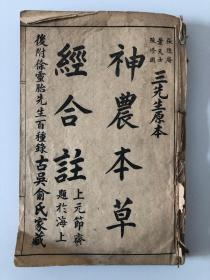 張隱庵
葉天士
陳修園
三先生原本
神農本草
經合註
上元節齋
題於海上
後附徐靈胎先生百種錄古吳俞氏家藏